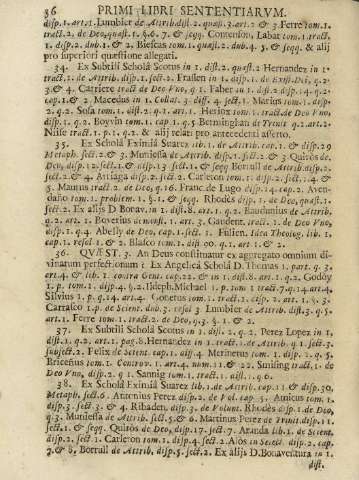 36 PRIMI LIBRI SENTENTIARVM.
disp.1. art.1. Lumbier de Attrib. disp.2. quæst.3. art.2. & 3. Ferre tom.1.
tract.2. de Deo, quæst.1. §.6. 7. & seqq. Contenson, Labat tom.1. tract.
1. disp.2. dub.1. & 2. Biescas tom.1. quæst.2. dub.4. 5. & seqq. & alij
pro superiori quæstione allegati.
34. Ex Subtili Scholâ Scotus in 1. dist.2. quæst.2 Hernandez in 1.
tract.1. de Attrib. disp.1. sect.2. Frassen in 1. disp.1. de Exist. Dei, q.2.
3. & 4. Carriere tract. de Deo Vno, q 1. Faber in 1. dist.2 disp.14. q.2.
cap.1. & 2 Macedus in 1. Collat. 3. diff. 4. sect.1. Marius tom.1. disp.
2. q.2. Sosa tom.1. dist.2. q.1. art.1. Herinx tom.1. tract. de Deo Vno,
disp.1. q.2. Boyvin tom.1. cap.1. q.5 Brancaglia de Trinit q.2. art.2.
Niise tract.1. p.1. q.2. & alij relati pro antecedenti asserto.
35. Ex Scholâ Eximiâ Suarez lib.1. de Attrib. cap.1. & disp.29
Metaph. sect.2. & 3. Muniessa de Attrib. disp.1. sect.2. & 3 Quiròs de
Deo, disp.12. sect.1. & disp.13 sect.1. & seqq Borrull de Attrib. disp.2.
sect.3. & 4. Arriaga disp.2. sect.2. Carleton tom.1. disp.2. sect.1. 4. &
5. Maurus tract.2. de Deo, q.16. Franc. de Lugo disp.14. cap.2. Aven-
daño tom.1. problem.1. §.1. & seqq. Rhodès disp.1. de Deo, quæst.1.
sect.2. Ex alijs D. Bonav. in 1. dist.8. art.1. q.2. Baudunius de Attrib.
q.2. art.1. Boverius demonst.1. art.3. Gaudent. tract.1. de Deo Vno,
disp.1. q.4. Abelly de Deo, cap.1. sect.1. Fulien. Idea Theolog. lib.1.
cap.1. resol 1. & 2. Blasco tom.1. dist 90. q.1. art 1. & 2.
36. QVÆST. 3. An Deus constituatur ex aggregato omnium di-
vinarum perfectionum? Ex Angelicâ Scholâ D. Thomas 1. part q 3.
art.4. & lib. 1. contra Gent. cap.22. & in 1. dist.8. art.1. q.2. Godoy
1. p. tom.1. disp.4. §.2. Ildeph. Michael 1. p. tom 1 tract.7. q.14. art.4.
Silvius 1. p. q.14. art.4. Gonetus tom.1. tract.1. disp 2. art 1. §. 3.
Carrasco 1. p. de Scient. dub.3. resol 3 Lumbier de Attrib. dist.3. q.5.
art.1. Ferre tom.1. tract.2. de Deo, q.3. §.1. & 2.
37. Ex Subtili Scholâ Scotus in 1. dist. 2. q.2. Perez Lopez in 1.
dist.1. q.2. art.1. pag.8. Hernandez in 1. tract. de Attrib. q 1. sect.3.
subject.2. Felix de Scient. cap.1. diff.4. Merinerus tom.1. disp. 1. q.5.
Briceñus tom.1. Controv. 1. art.4. num.11. & 22. Smising tract. 1. de
Deo Vno, disp.2. q 1. Sannig tom.1. tract.1 dist.1. q.6.
38. Ex Scholâ Eximiâ Suarez lib.1. de Attrib. cap.11. & disp.30.
Metaph. sect.6. Antonius Perez. disp.2. de Vol. cap.5. Amicus tom.1.
disp.3. sect.3. & 4. Ribaden. disp.3. de Volunt. Rhodès disp.1 de Deo,
q.3. Muniessa de Attrib. sect.5. & 6. Martinus Perez de Trinit. disp.11.
sect.1. & seqq. Quiròs de Deo, disp.17. sect.7. Aranda lib.1. de Scient.
disp.2. sect.1. Carleton tom.1. disp.4. sect.2. Alòs in Scient. disp.2. cap.
7. & 8. Borrull de Attrib. disp.5. sect.2. Ex alijs D. Bonaventura in 1.
dist.